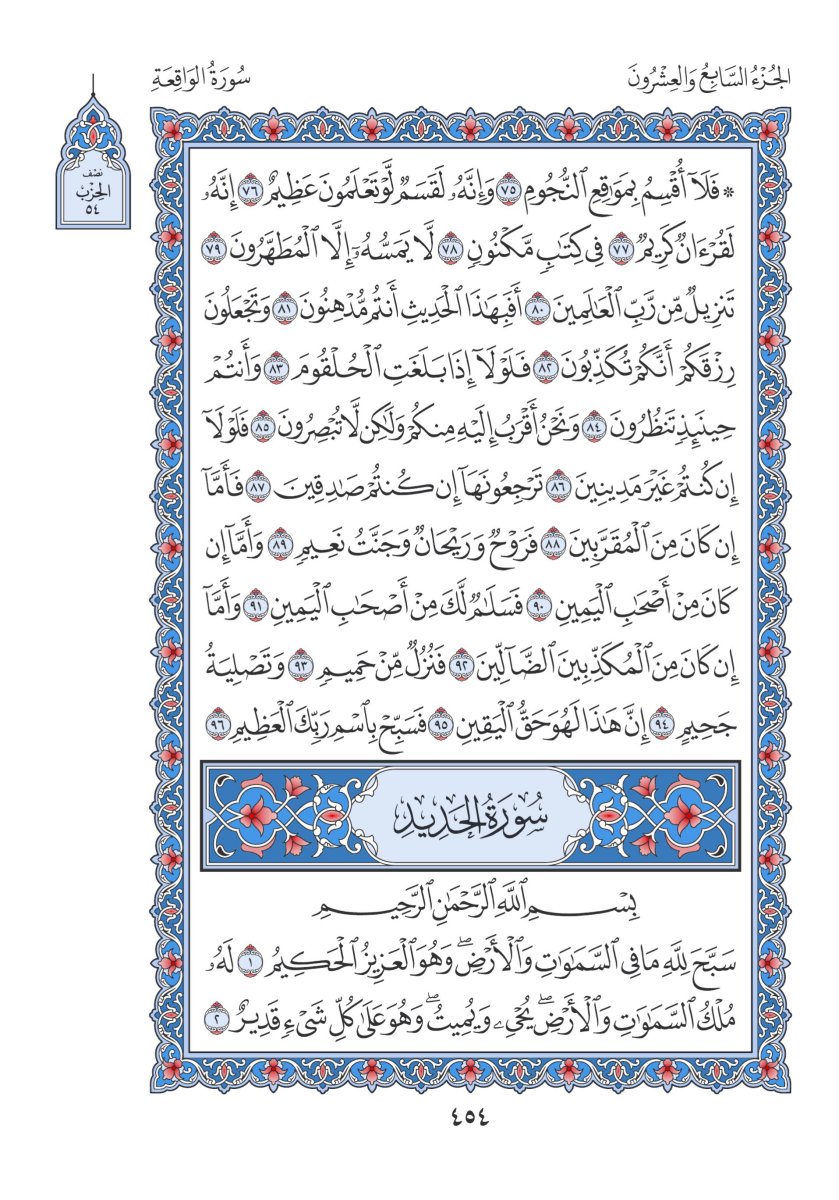 الجُزْءُ السَّابِعُ وَالعِشْرُونَ
سُورَةُ الوَاقِعَةِ
نصف
الحزب
٥٤
۞ فَلَآ أُقْسِمُ بِمَوَٰقِعِ ٱلنُّجُومِ ٧٥ وَإِنَّهُۥ لَقَسَمٌ لَّوْ تَعْلَمُونَ عَظِيمٌ ٧٦ إِنَّهُۥ
لَقُرْءَانٌ كَرِيمٌ ٧٧ فِي كِتَٰبٍ مَّكْنُونٍ ٧٨ لَّا يَمَسُّهُۥٓ إِلَّا ٱلْمُطَهَّرُونَ ٧٩
تَنزِيلٌ مِّن رَّبِّ ٱلْعَٰلَمِينَ ٨٠ أَفَبِهَٰذَا ٱلْحَدِيثِ أَنتُم مُّدْهِنُونَ ٨١ وَتَجْعَلُونَ
رِزْقَكُمْ أَنَّكُمْ تُكَذِّبُونَ ٨٢ فَلَوْلَآ إِذَا بَلَغَتِ ٱلْحُلْقُومَ ٨٣ وَأَنتُمْ
حِينَئِذٍ تَنظُرُونَ ٨٤ وَنَحْنُ أَقْرَبُ إِلَيْهِ مِنكُمْ وَلَٰكِن لَّا تُبْصِرُونَ ٨٥ فَلَوْلَآ
إِن كُنتُمْ غَيْرَ مَدِينِينَ ٨٦ تَرْجِعُونَهَآ إِن كُنتُمْ صَٰدِقِينَ ٨٧ فَأَمَّآ
إِن كَانَ مِنَ ٱلْمُقَرَّبِينَ ٨٨ فَرَوْحٌ وَرَيْحَانٌ وَجَنَّتُ نَعِيمٍ ٨٩ وَأَمَّآ إِن
كَانَ مِنْ أَصْحَٰبِ ٱلْيَمِينِ ٩٠ فَسَلَٰمٌ لَّكَ مِنْ أَصْحَٰبِ ٱلْيَمِينِ ٩١ وَأَمَّآ
إِن كَانَ مِنَ ٱلْمُكَذِّبِينَ ٱلضَّآلِّينَ ٩٢ فَنُزُلٌ مِّنْ حَمِيمٍ ٩٣ وَتَصْلِيَةُ
جَحِيمٍ ٩٤ إِنَّ هَٰذَا لَهُوَ حَقُّ ٱلْيَقِينِ ٩٥ فَسَبِّحْ بِٱسْمِ رَبِّكَ ٱلْعَظِيمِ ٩٦
سُورَةُ الحَدِيدِ
بِسْمِ ٱللَّهِ ٱلرَّحْمَٰنِ ٱلرَّحِيمِ
سَبَّحَ لِلَّهِ مَا فِي ٱلسَّمَٰوَٰتِ وَٱلْأَرْضِۖ وَهُوَ ٱلْعَزِيزُ ٱلْحَكِيمُ ١ لَهُۥ
مُلْكُ ٱلسَّمَٰوَٰتِ وَٱلْأَرْضِۖ يُحْيِۦ وَيُمِيتُۖ وَهُوَ عَلَىٰ كُلِّ شَيْءٍ قَدِيرٌ ٢
٤٥٤